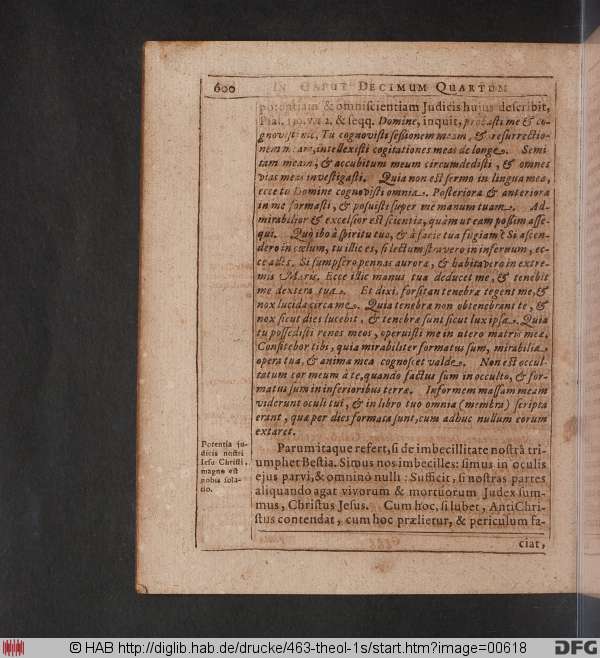 600 IN CAPUT DECIMUM QUARTUM
potentiam & omniscientiam Judicis hujus describit,
Psal. 139. v. 1. 2. & seqq. Domine, inquit, probasti me & co-
gnovisti me, Tu cognovisti sessionem meam, & resurrectio-
nem meam, intellexisti cogitationes meas de longe. Semi
tam meam, & accubitum meum circumdedisti, & omnes
vias meas investigasti. Quia non est sermo in lingua mea,
ecce tu Domine cognovisti omnia. Posteriora & anteriora
in me formasti, & posuisti super me manum tuam. Ad-
mirabilior & excelsior est scientia, quàm ut eam possim asse-
qui. Quò ibo à spiritu tuo, & à facie tua fugiam? Si ascen-
dero in cœlum, tu illic es, si lectum stravero in infernum, ec-
ce ades. Si sumpsero pennas auroræ, & habitavero in extre-
mis Maris. Ecce illic manus tua deducet me, & tenebit
me dextera tua. Et dixi, forsitan tenebræ tegent me, &
nox lucida circa me. Quia tenebræ non obtenebrant te, &
nox sicut dies lucebit, & tenebræ sunt sicut lux ipsa. Quia
tu possedisti renes meos, operuisti me in utero matris meæ.
Confitebor tibi, quia mirabiliter formatus sum, mirabilia
opera tua, & anima mea cognoscet valde. Non est occul-
tatum cor meum à te, quando factus sum in occulto, & for-
matus sum in inferioribus terræ. Informem massam meam
viderunt oculi tui, & in libro tuo omnia (membra) scripta
erant, quæ per dies formata sunt, cum adhuc nullum eorum
extaret.
Potentia ju-
dicis nostri
Iesu Christi,
magno est
nobis sola-
tio.
Parum itaque refert, si de imbecillitate nostrâ tri-
umphet Bestia. Simus nos imbecilles: simus in oculis
ejus parvi, & omninò nulli: Sufficit, si nostras partes
aliquando agat vivorum & mortuorum Judex sum-
mus, Christus Jesus. Cum hoc, si lubet, AntiChri-
stus contendat, cum hoc prælietur, & periculum fa-
ciat,
© HAB http://diglib.hab.de/drucke/463-theol-1s/start.htm?image=00618
DFG